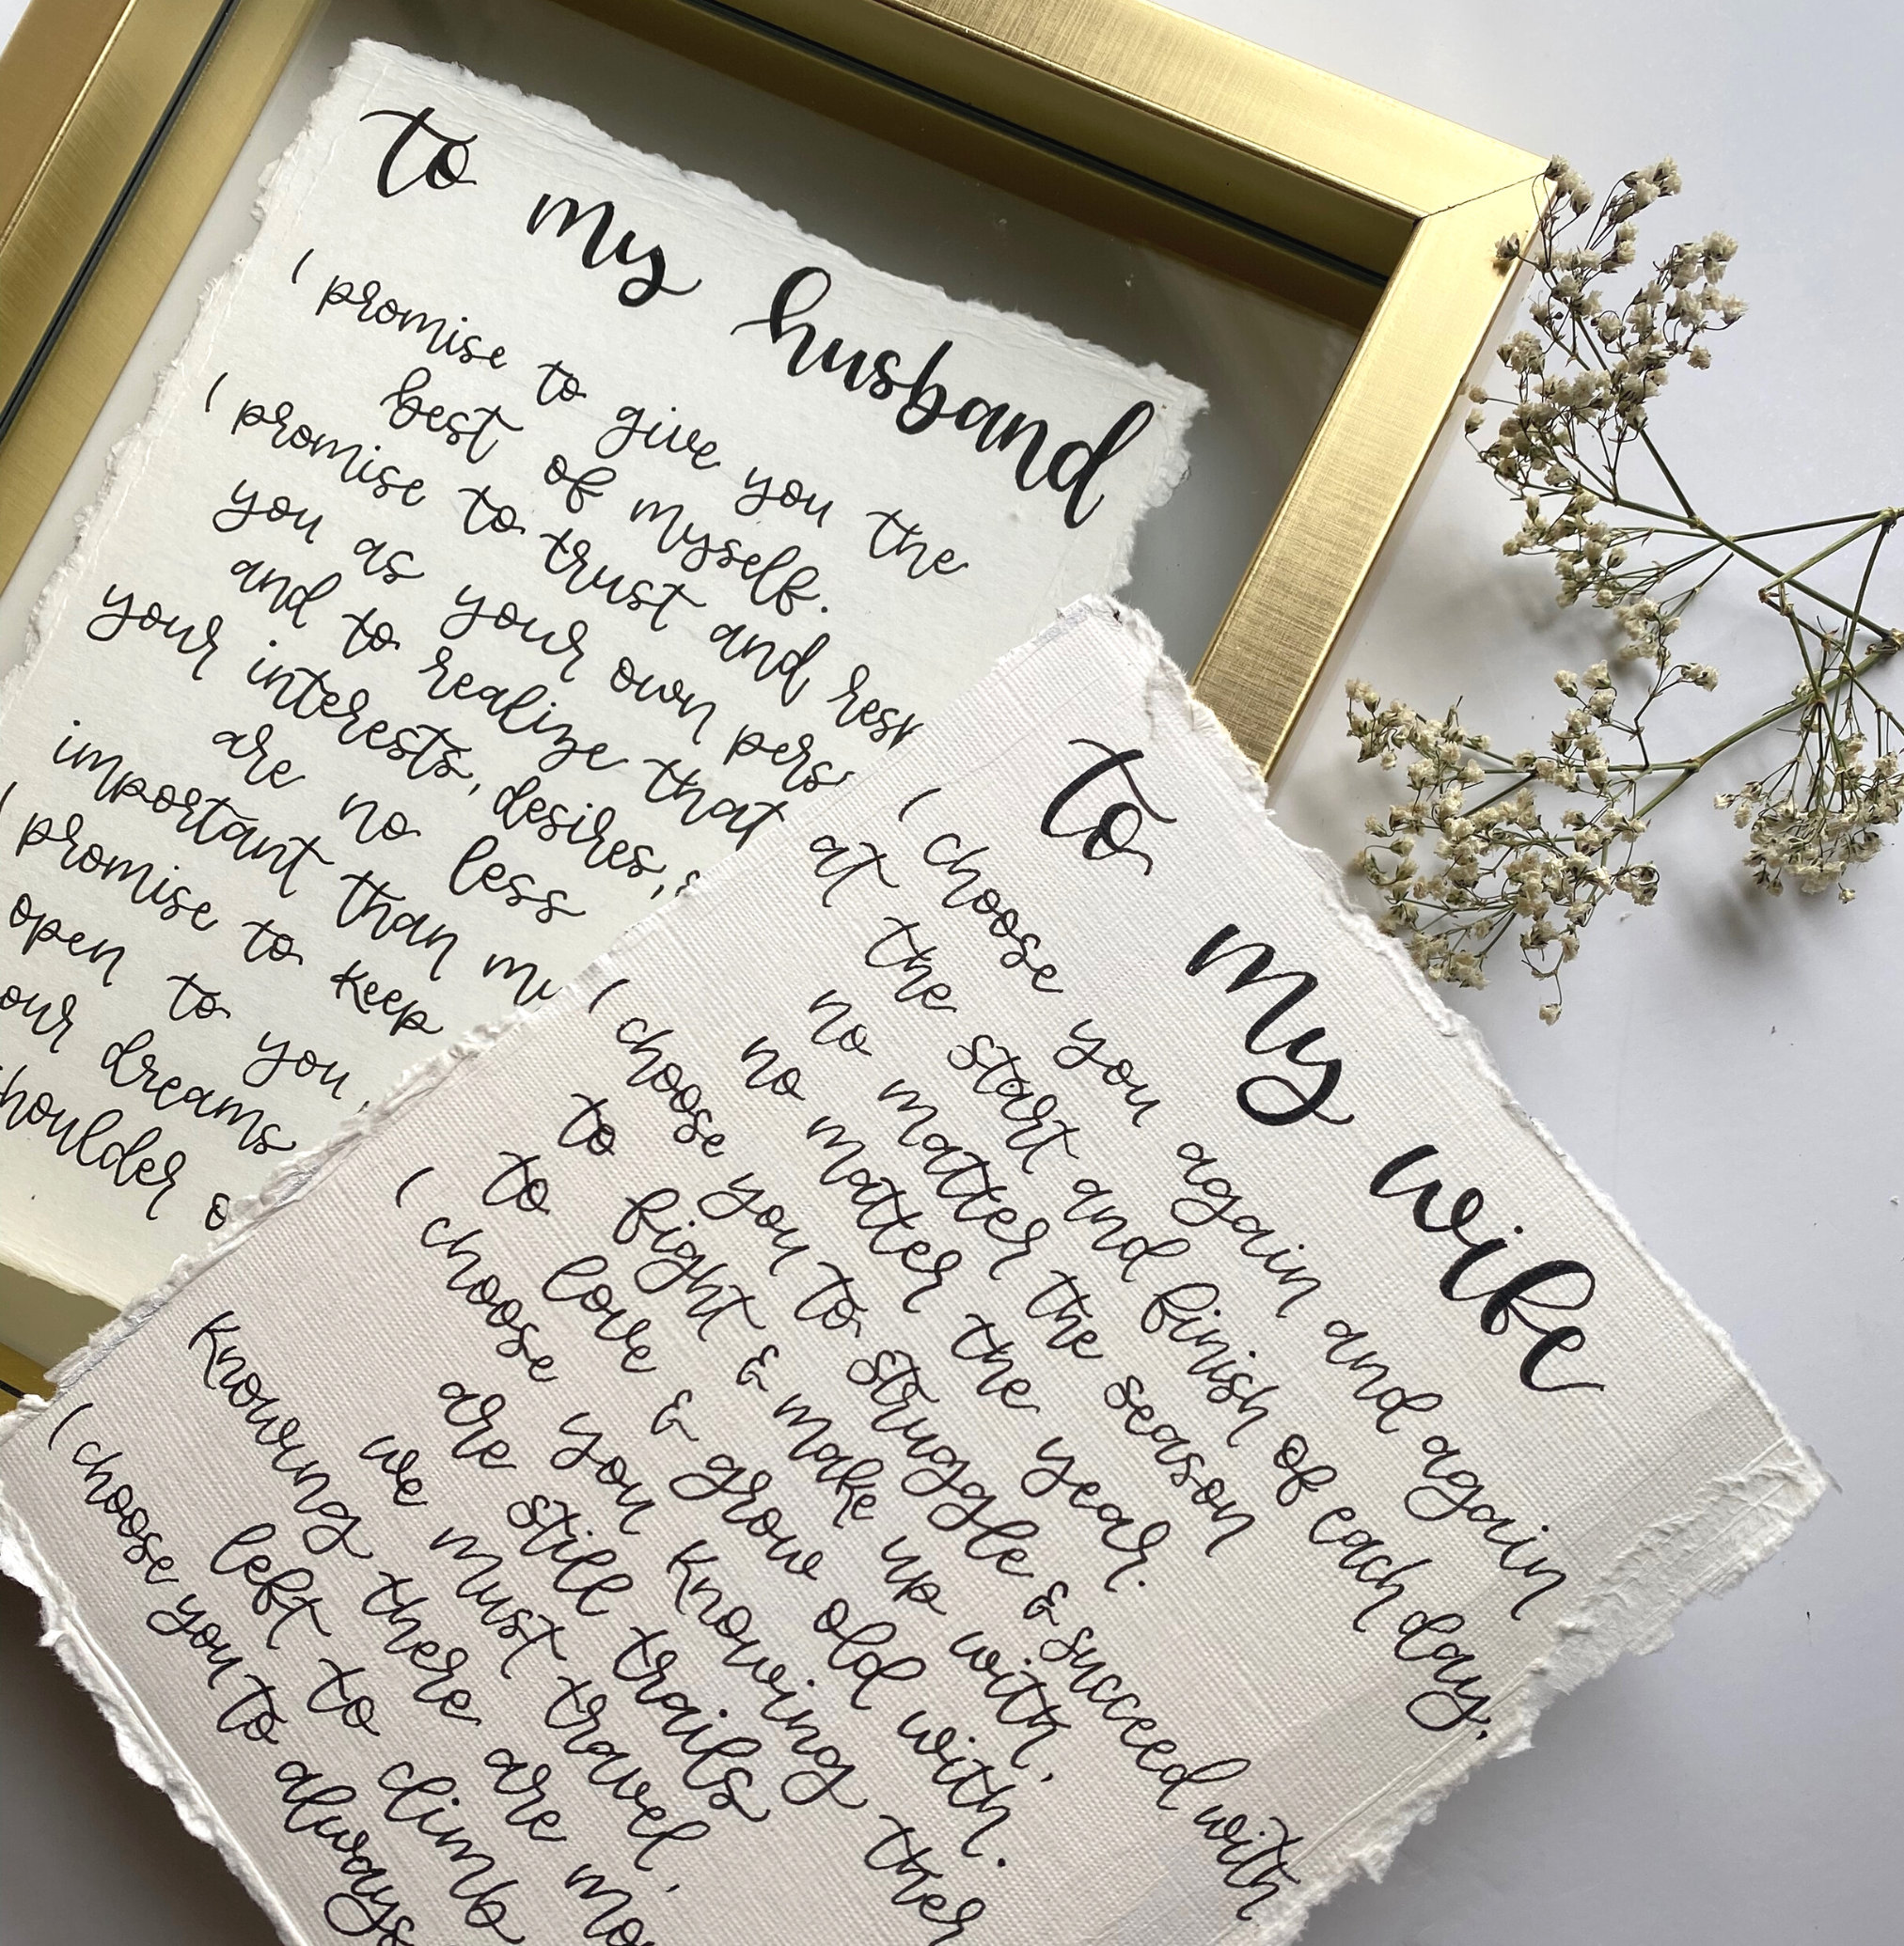 to my husband
I promise to give you the
best of myself.
I promise to trust and
you as your own
and to realize that
your interests, desires,
are no less
important than
I promise to keep
open to you,
our dreams
to my wife
I choose you again and again
at the start and finish of each day.
no matter the season
no matter the year.
I choose you to struggle & succeed with
to fight & make up with,
to love & grow old with.
I choose you knowing
are still trails
we must travel,
Knowing there are
left to climb
I choose you to always